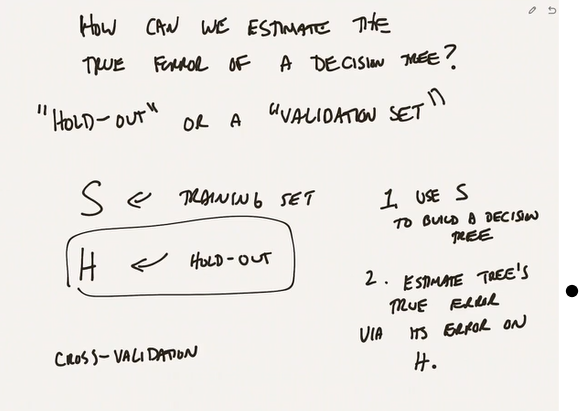 HOW CAN WE ESTIMATE THE
TRUE ERROR OF A DECISION TREE?
"HOLD-OUT" OR A "VALIDATION SET"
S ← TRAINING SET
H ← HOLD-OUT
CROSS-VALIDATION
1. USE S
TO BUILD A DECISION
TREE
2. ESTIMATE TREE'S
TRUE ERROR
VIA ITS ERROR ON
H.